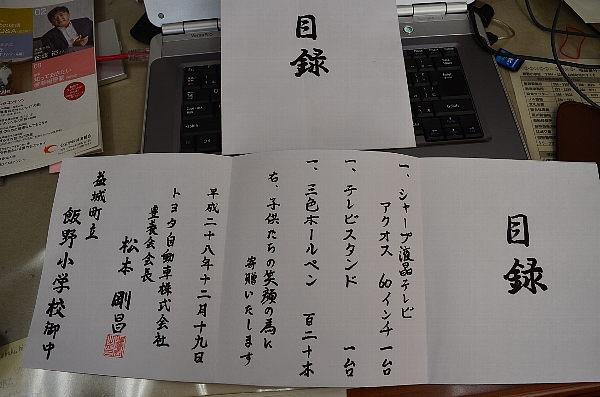 目録
目録
一、シャープ液晶テレビ
アクオス 60インチ 一台
一、テレビスタンド 一台
一、三色ボールペン 百二十本
右、子供たちの笑顔の為に
寄贈いたします
平成二十八年十二月十九日
トヨタ自動車株式会社
豊養会会長
松本 剛昌
益城町立
飯野小学校御中